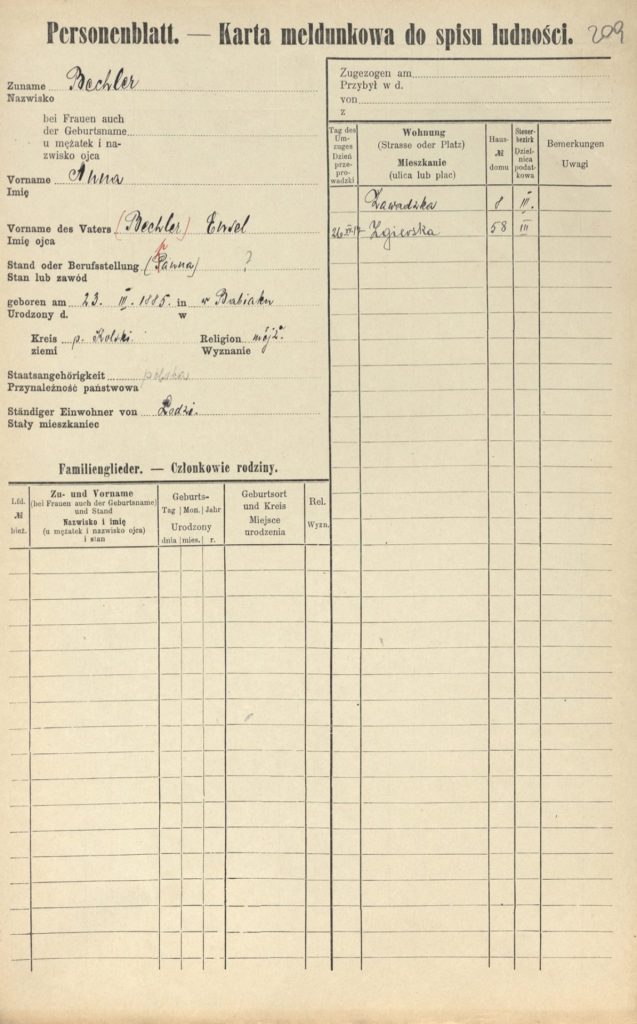 Personenblatt. — Karta meldunkowa do spisu ludności. 209
Zuname Bechler
Nazwisko
bei Frauen auch
der Geburtsname
u mężatek i na-
zwisko ojca
Vorname Anna
Imię
Vorname des Vaters (Bechler)
Imię ojca
Stand oder Berufsstellung (Panna) ?
Stan lub zawód
geboren am 23. III. 1885. in w Babiaku
Urodzony d. w
Kreis p. Kolski Religion mojż.
ziemi Wyznanie
Staatsangehörigkeit polska
Przynależność państwowa
Ständiger Einwohner von Łodzi.
Stały mieszkaniec
Zugezogen am
Przybył w d.
von
z
Tag des Um-zuges Dzień prze-prowadzki
Wohnung
(Strasse oder Platz)
Mieszkanie
(ulica lub plac)
Haus-
№
domu
Steuer-bezirk Dziel-nica podat-kowa
Bemerkungen
Uwagi
Zawadzka 8 III.
Zgierska 58 III
Familienglieder. — Członkowie rodziny.
Lfd.
№
bież.
Zu- und Vorname
(bei Frauen auch der Geburtsname)
und Stand
Nazwisko i imię
(u mężatek i nazwisko ojca)
i stan
Geburts-
Tag | Mon. | Jahr
Urodzony
dnia | mies. | r.
Geburtsort
und Kreis
Miejsce
urodzenia
Rel.
Wyzn.